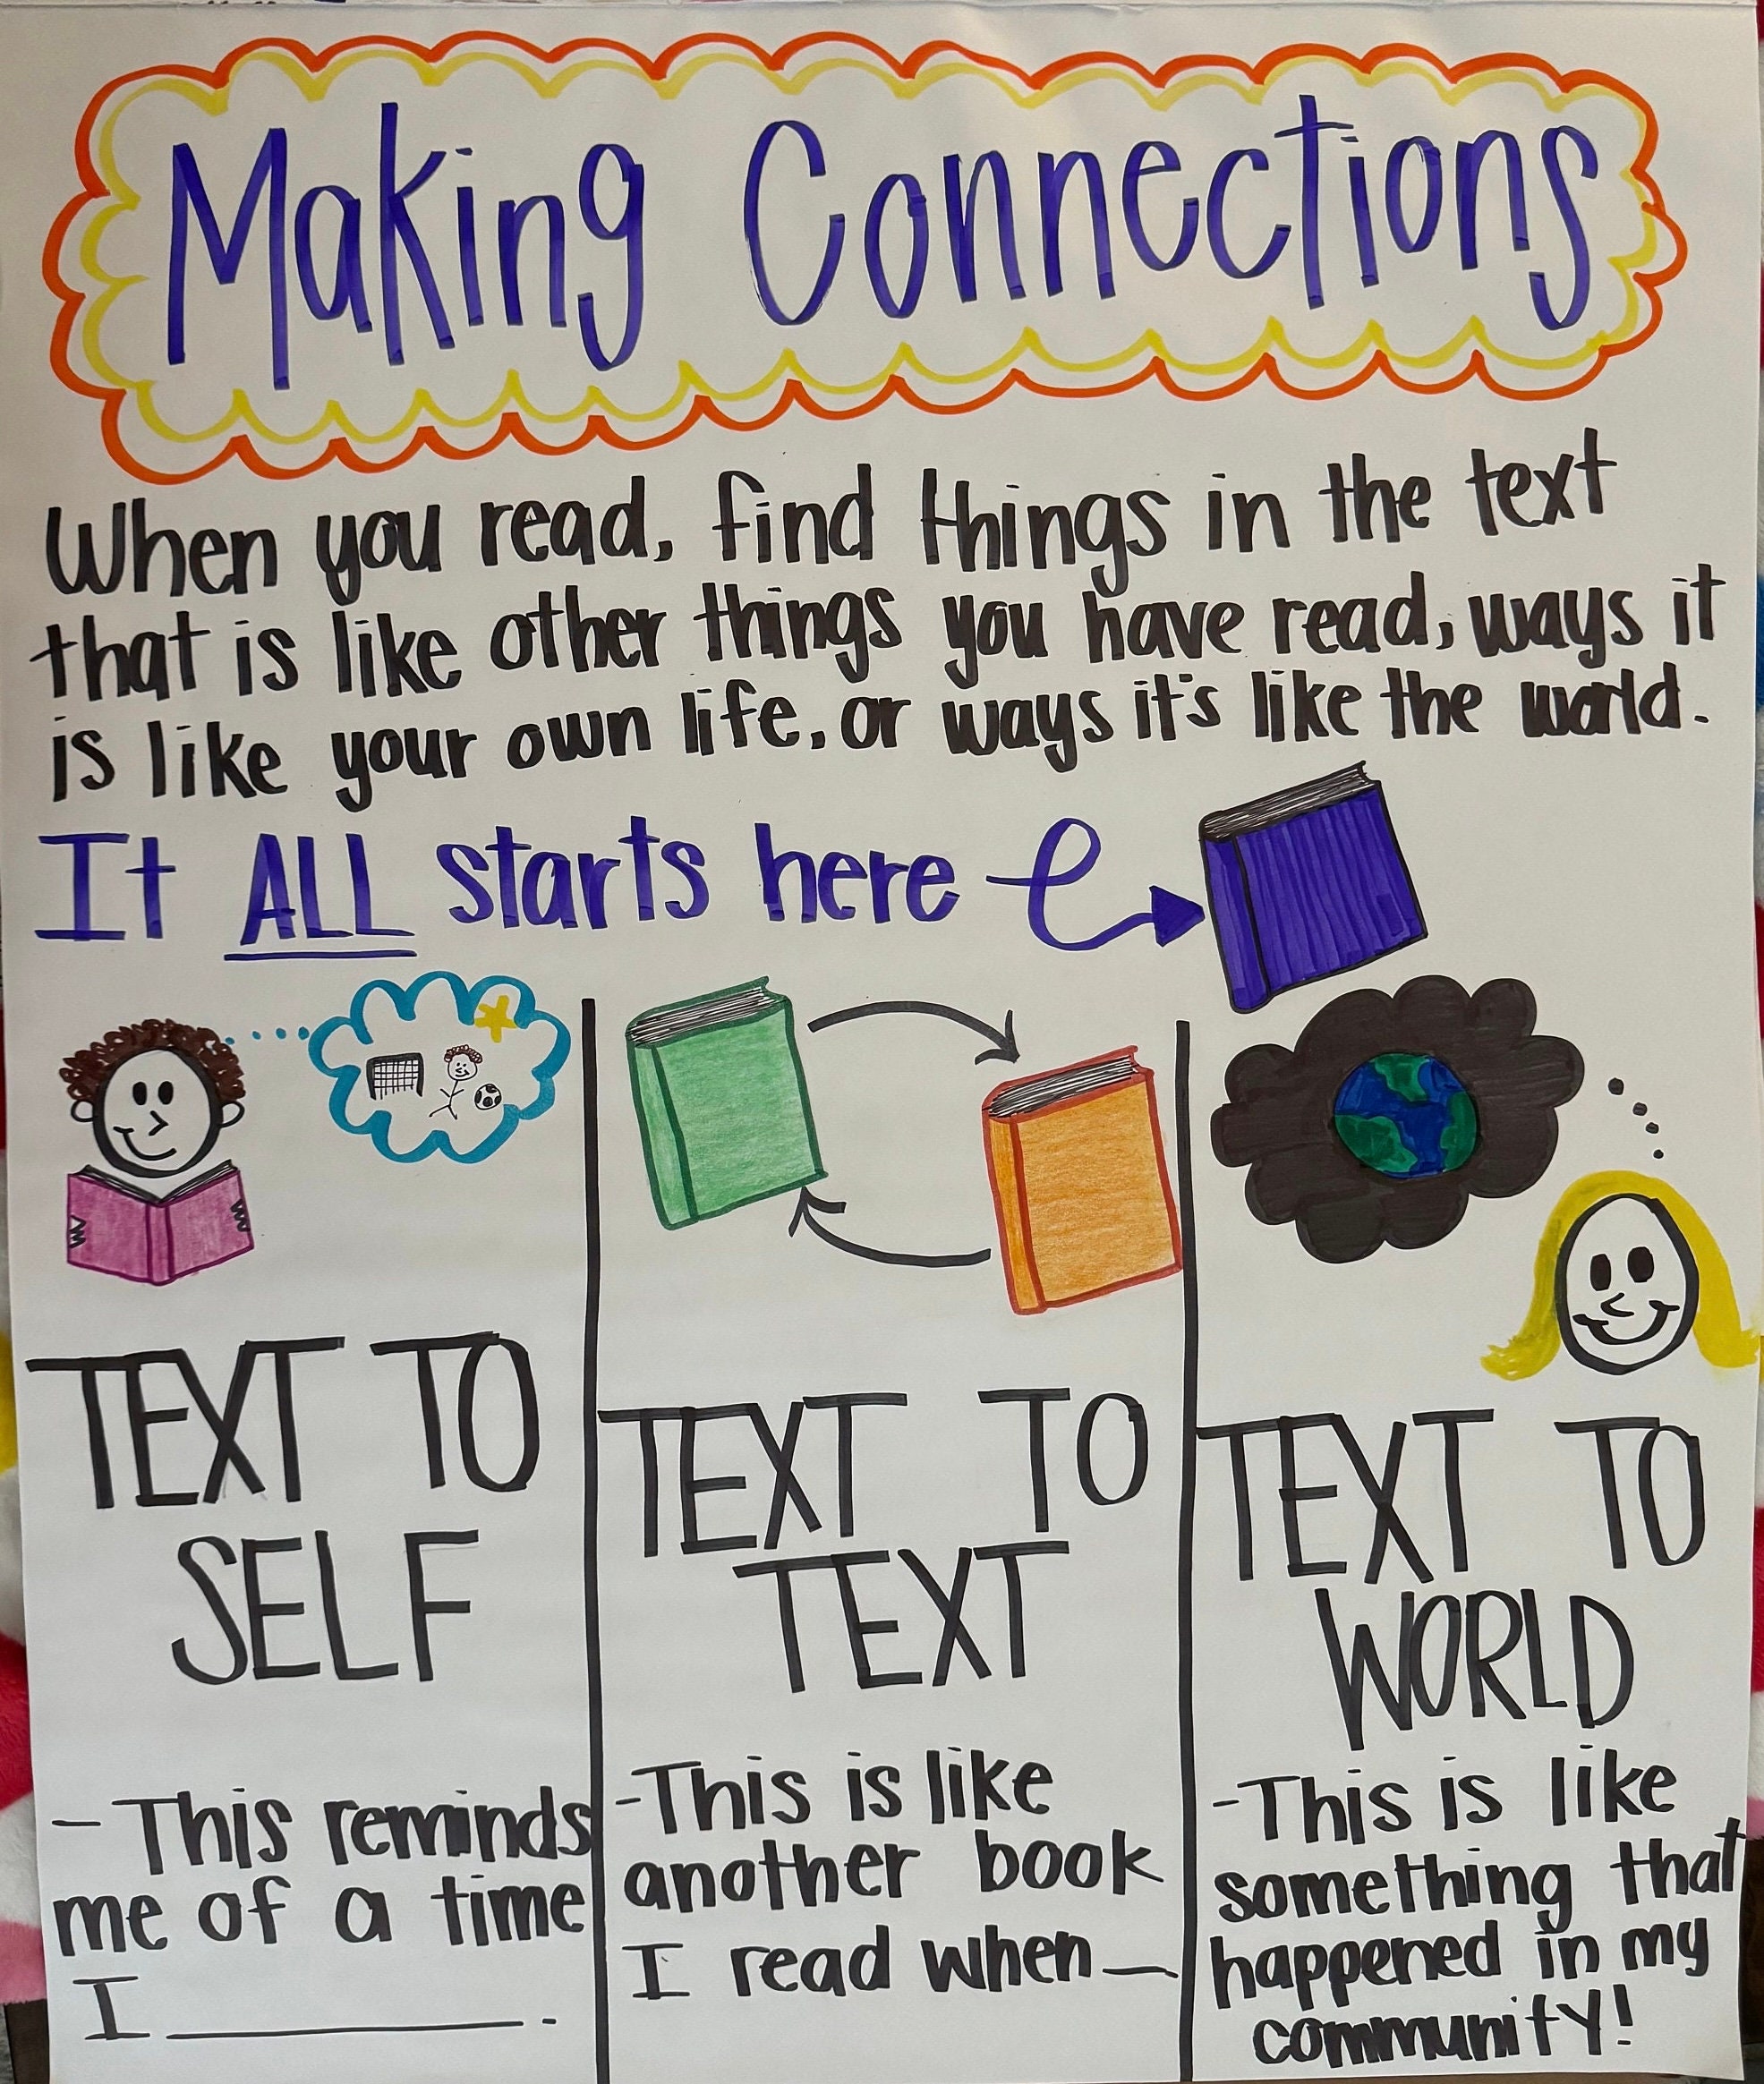 Making Connections
When you read, find things in the text
that is like other things you have read, ways it
is like your own life, or ways it's like the world.
It ALL starts here
TEXT TO
SELF
- This reminds
me of a time
I ________.
TEXT TO
TEXT
-This is like
another book
I read when __
TEXT TO
WORLD
-This is like
something that
happened in my
community!